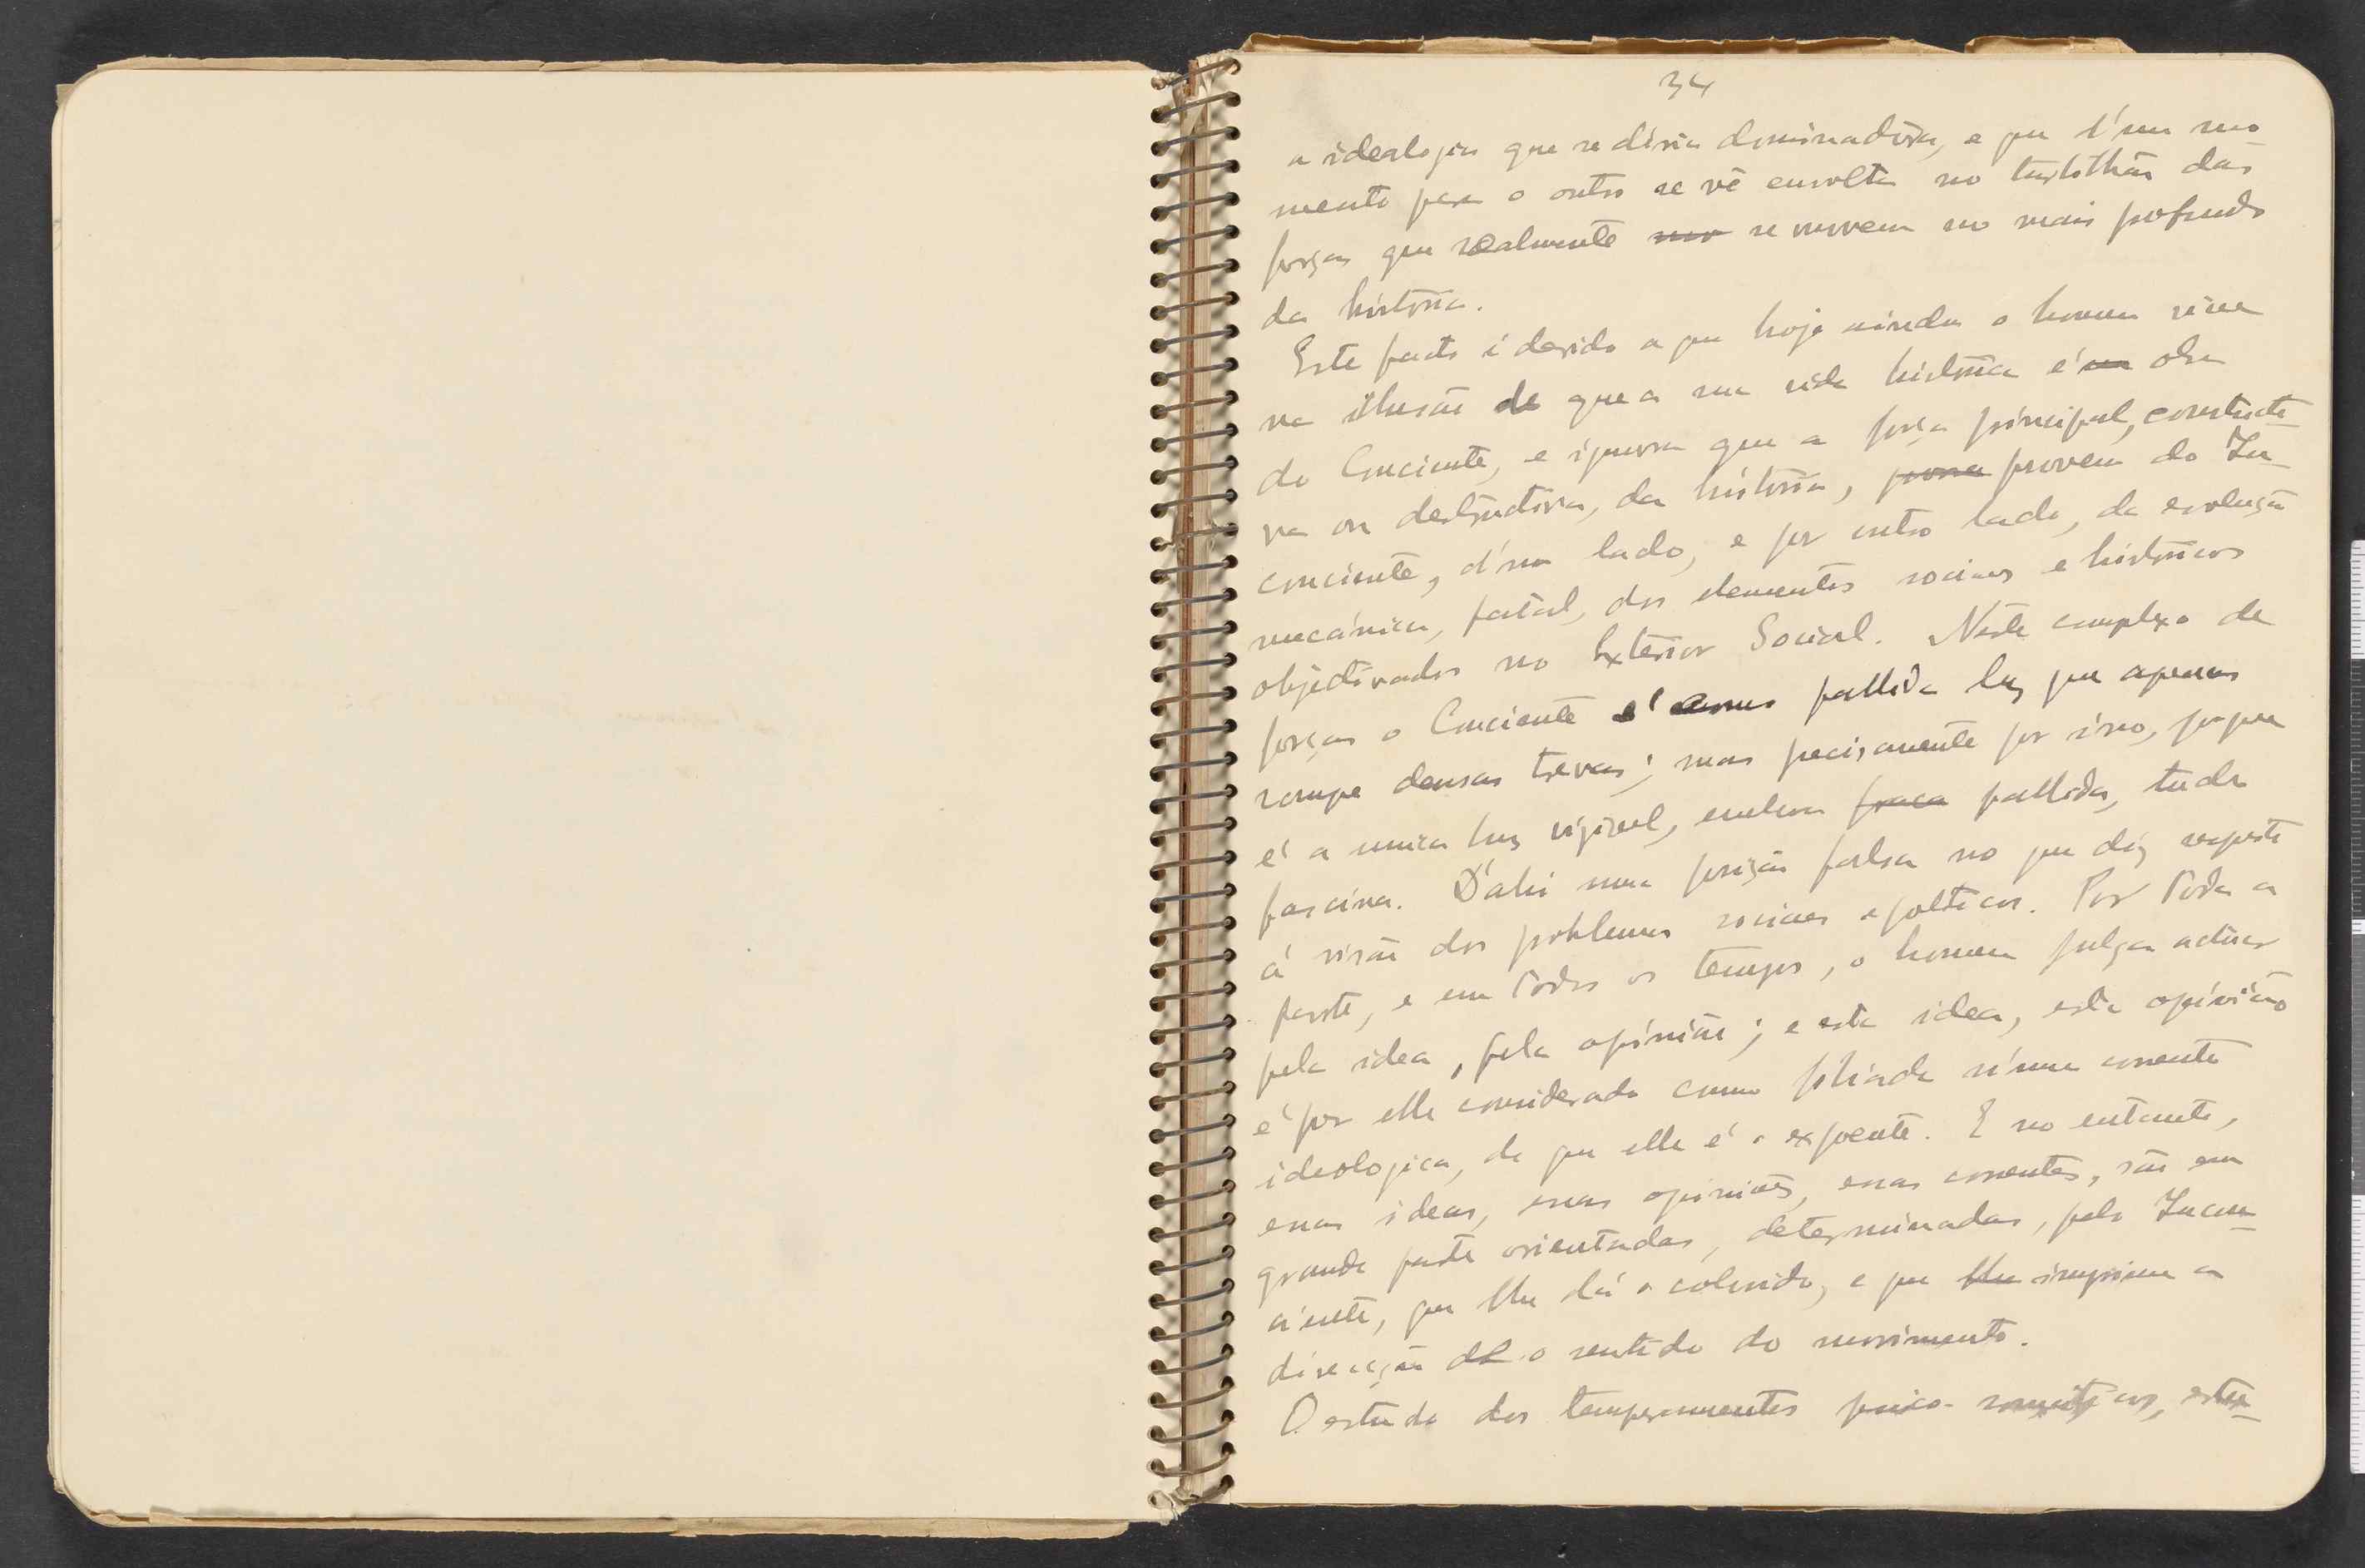 34
a idealogia que se diria dominadora, e que d'um mo
mento para o outro se vê envolta no turbilhão das
forças que realmente se movem no mais profundo
da história.
Este facto é devido a que hoje ainda o homem vive
na illusão de que a sua vida histórica é obra
do Conciente, e ignora que a força principal, constructi-
va ou destructiva, da história, provem do In-
conciente, d'um lado, e por outro lado, da evolução
mecánica, fatal, dos elementos sociaes e históricos
objectivados no Exterior Social. Neste complexo de
forças o Conciente é pallida luz que apenas
rompe densas trevas; mas precisamente por isso, porque
é a unica luz visivel, embora fraca pallida, tudo
fascina. D'ahi uma posição falsa no que diz respeito
á visão dos problemas sociaes e politicos. Por toda a
parte, e em todos os tempos, o homem julga actuar
pela idea, pela opinião; e esta idea, esta opinião
é por elle considerada como filiada n'uma corrente
ideologica, de que elle é o expoente. E no entanto,
essas ideas, essas opiniões, essas correntes, são em
grande parte orientadas, determinadas, pelo Incon-
ciente, que lhe dá o colorido, e que lhe imprime a
direcção o sentido do movimento.
O estudo dos temperamentos psico-somaticos, estu-